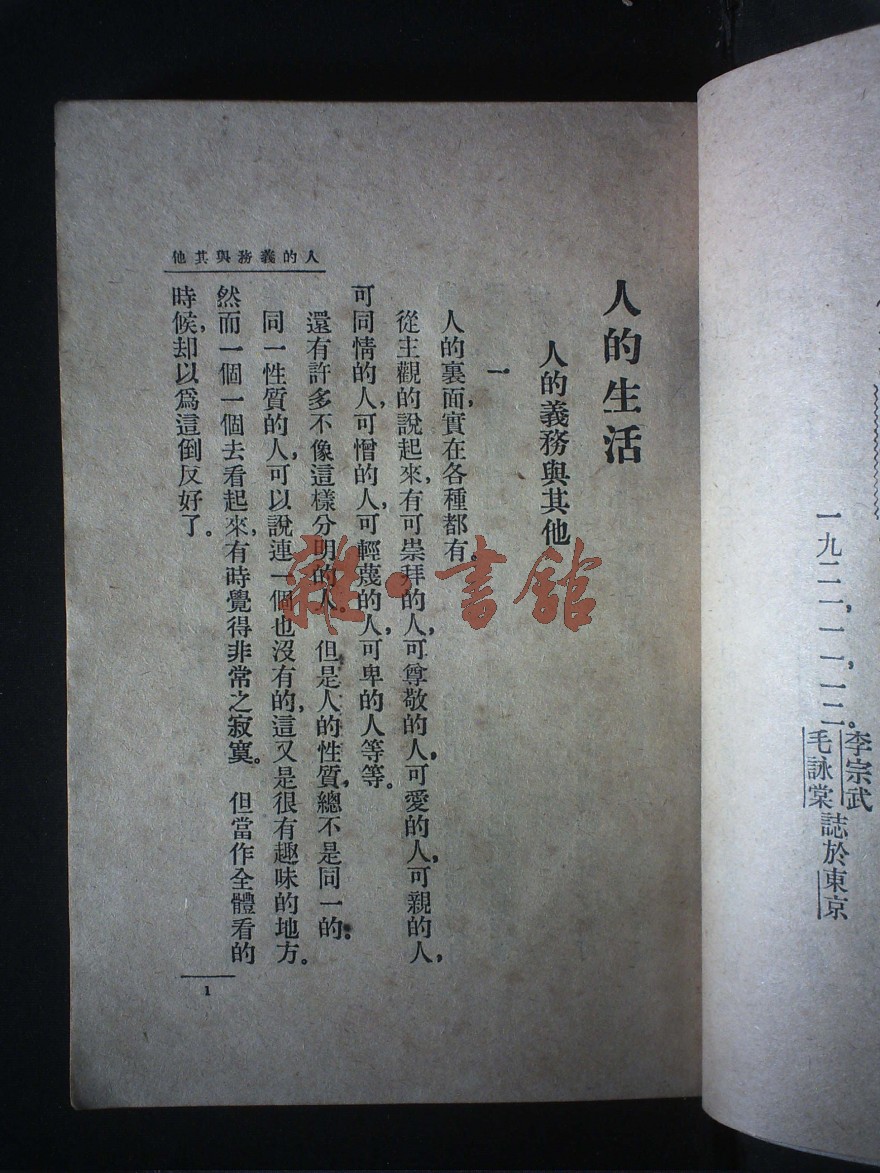 一九二一，一一，一二。
李宗武
毛詠棠
誌於東京
人的生活
人的義務與其他
一
人的裏面，實在各種都有。
從主觀的說起來，有可崇拜的人，可尊敬的人，可愛的人，可親的人，
可同情的人，可憎的人，可輕蔑的人，可卑的人等等。
還有許多不像這樣分明的人。但是人的性質，總不是同一的。
同一性質的人，可以說連一個也沒有的，這又是很有趣味的地方。
然而一個一個去看起來，有時覺得非常之寂寞。但當作全體看的
時候，却以爲這倒反好了。
人的義務與其他
1
雜·書館